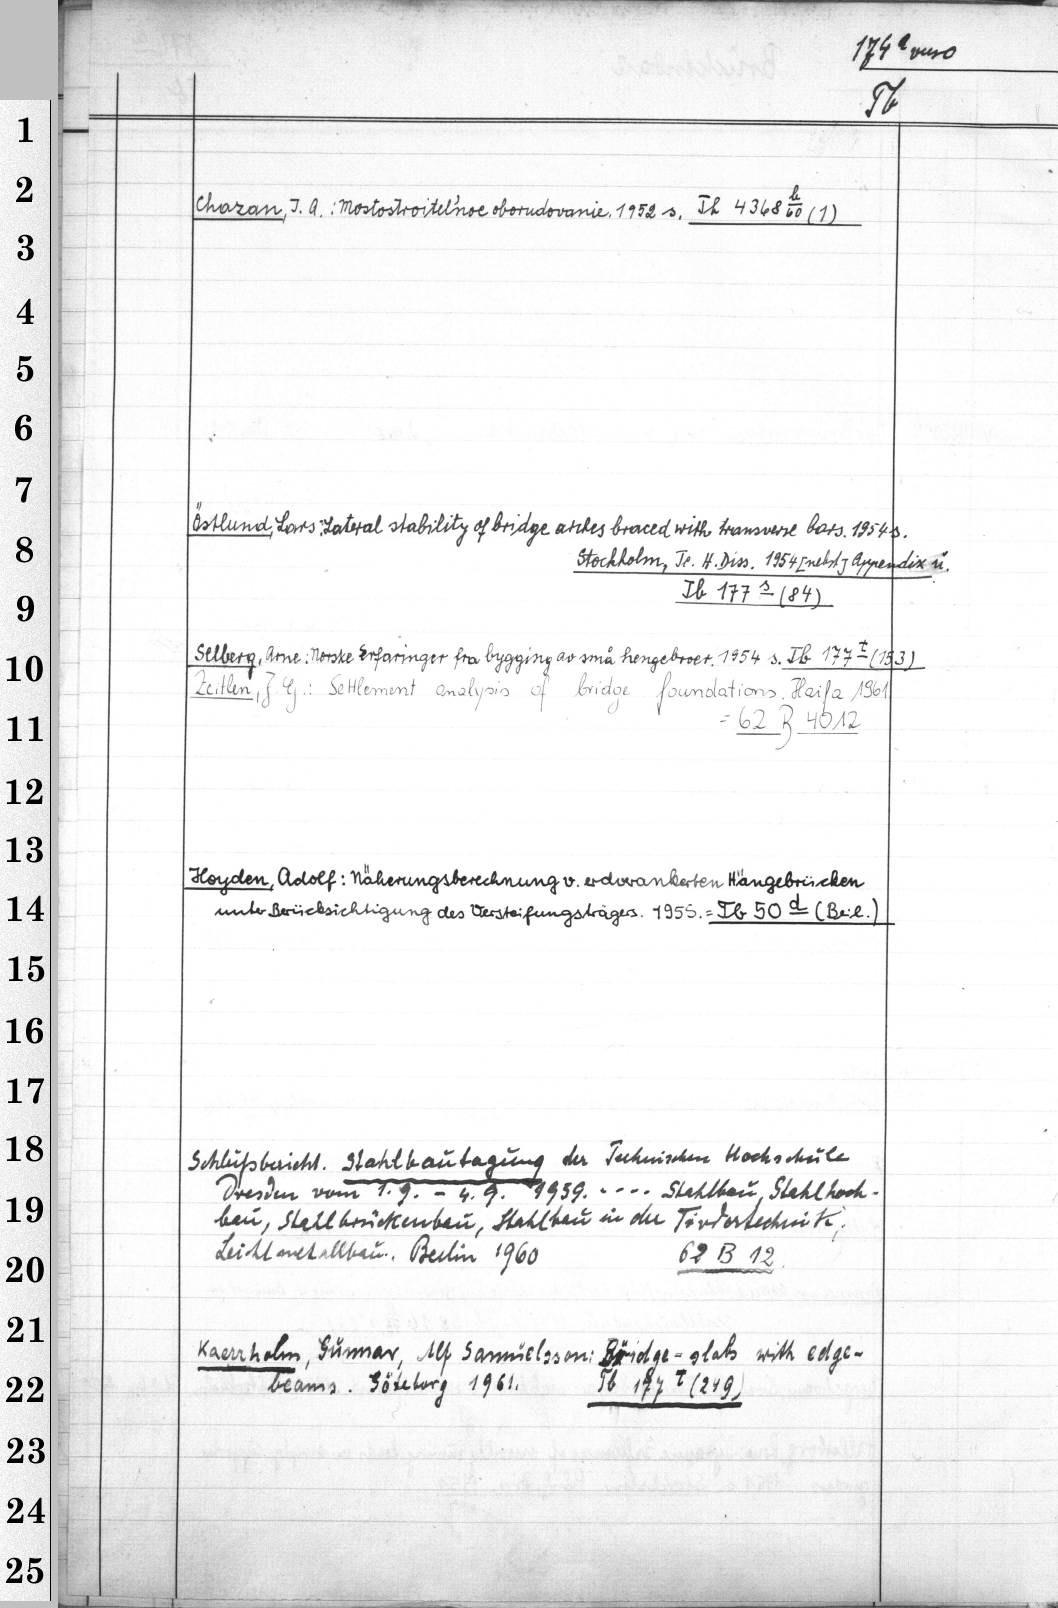 174a verso
Tb
1
2
Chazan, J. A.: Mostostroitel'noe oborudovanie. 1952 s. Th 4368 b/60 (1)
3
4
5
6
7
Östlund, Lars: Lateral stability of bridge arches braced with transverse bars. 1954 s.
8
Stockholm, Te. H. Diss. 1954 [nebst] Appendix u.
9
Tb 177 s (84)
10
Selberg, Arne: Norske Erfaringer fra bygging av små hengebroer. 1954 s. Tb 177 t (153)
Zeitlen, J. G.: Settlement analysis of bridge foundations. Haifa 1961
11
= 62 B 4012
12
13
Hoyden, Adolf: Näherungsberechnung v. erdverankerten Hängebrücken
14
unter Berücksichtigung des Versteifungsträgers. 1955. = Tb 50 d (Beil.)
15
16
17
18
Schlußbericht. Stahlbautagung der Technischen Hochschule
Dresden vom 1.9. - 4.9. 1959. .... Stahlbau, Stahlhoch-
19
bau, Stahlbrückenbau, Stahlbau in der Fördertechnik,
20
Leichtmetallbau. Berlin 1960 62 B 12
21
Kaerrholm, Gunnar, Alf Samuelsson: Bridge-slabs with edge-
22
beams. Göteborg 1961. Tb 177 t (249)
23
24
25